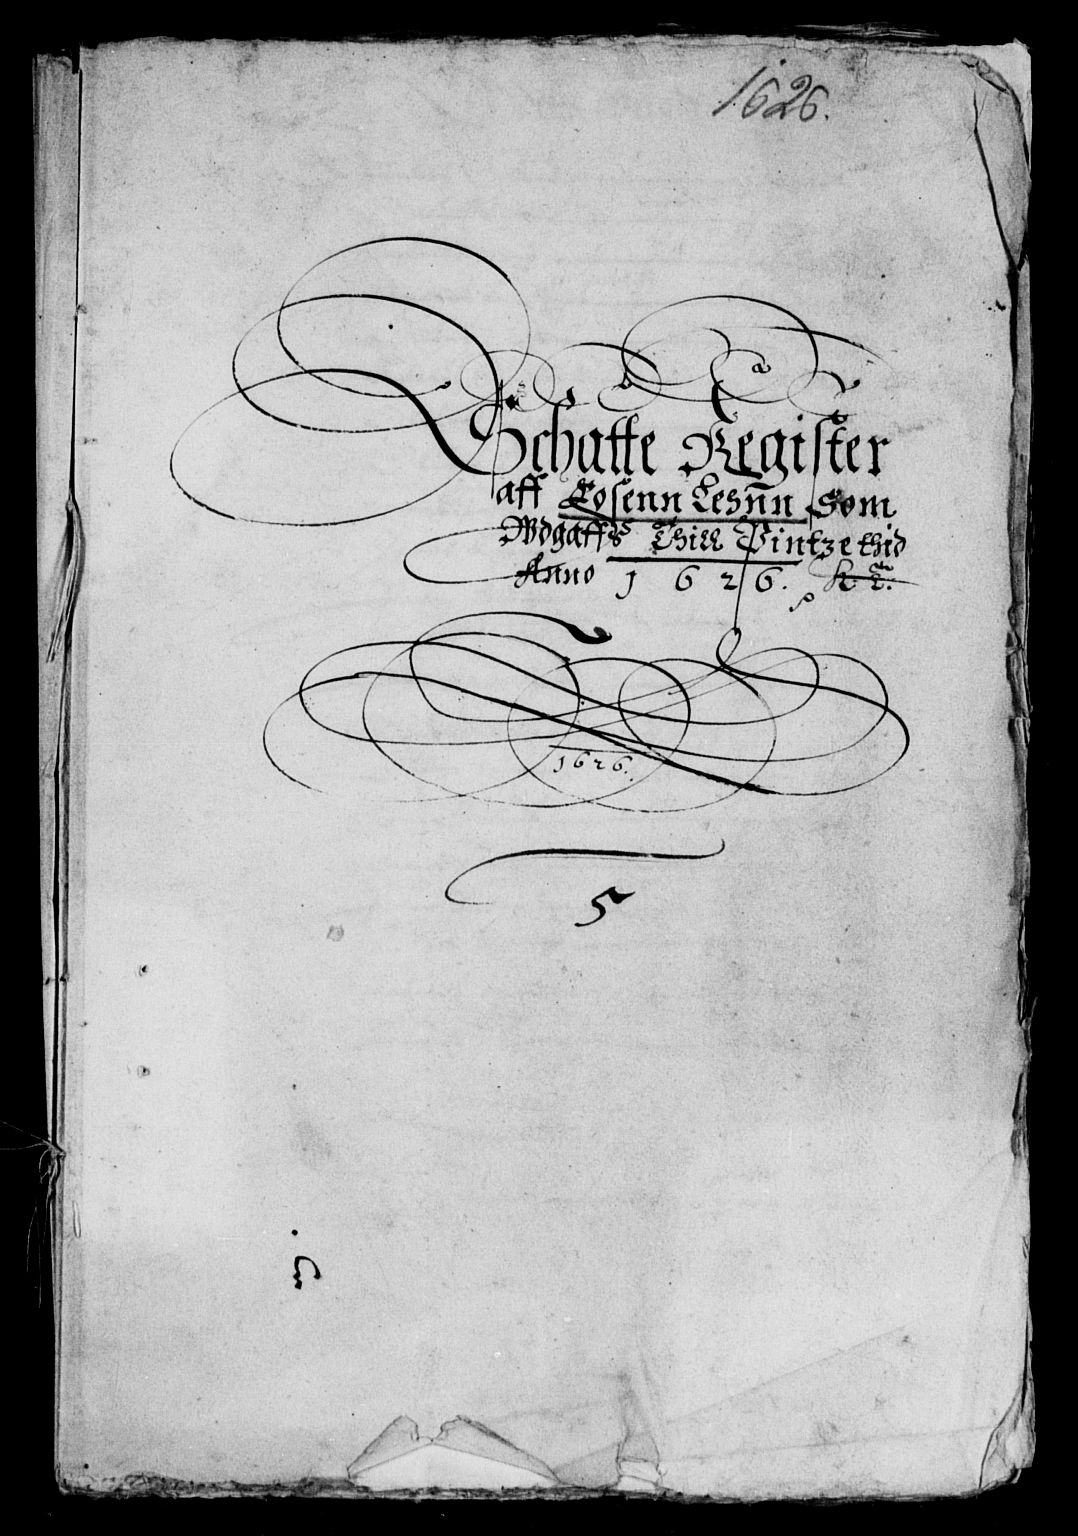 1626.
Schatte Register
aff Rosenn Lehnn Som
Wdgaffs Thill Pintze thid
Anno 1626.
1626.
5